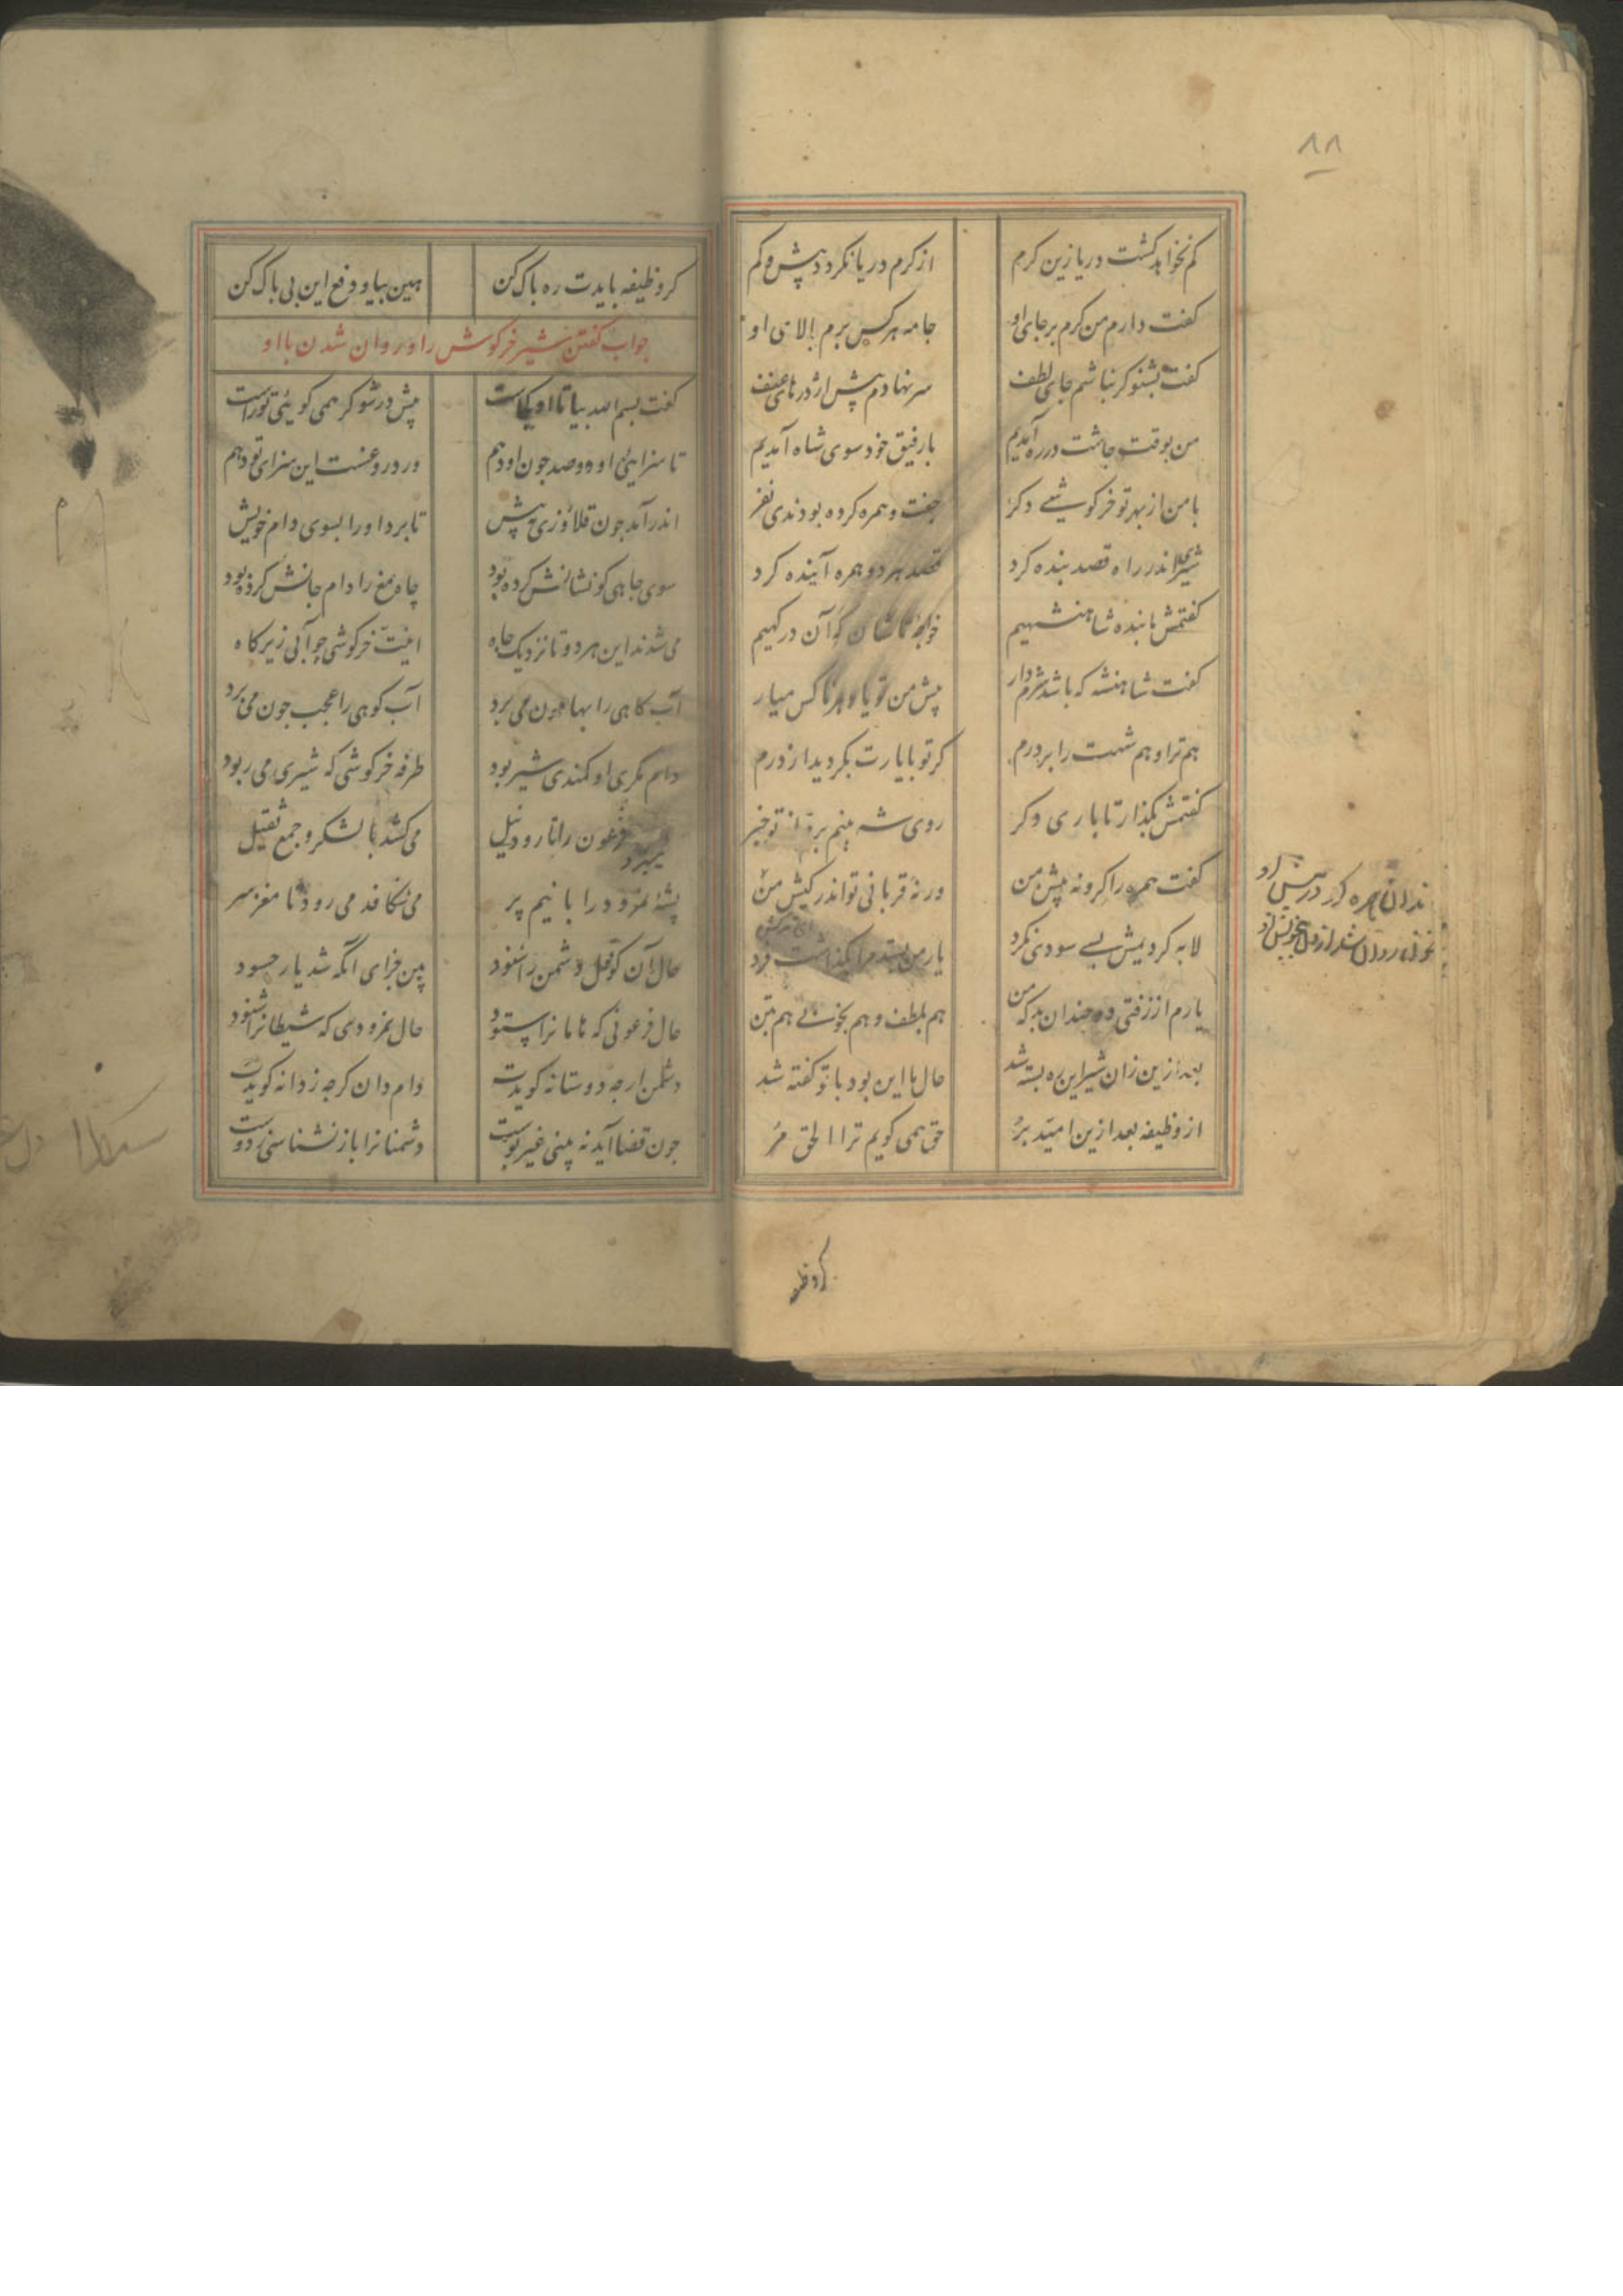 ۸۸
کم نخواهد گشت دریا زین کرم از کرم دریا نکردد پیش و کم
کفت دارم من کرم بر جای او جامه هر کس برم بالای او
کفت بشنو کر نباشم جای لطف سر نهادم پیش اژدرهای عنف
من بوقت جاشت در ره آمدیم با رفیق خود سوی شاه آمدیم
با من از بهر تو خرکوشی دکر جفت و همره کرده بودندی نفر
شیری اندر راه قصد بنده کرد قصد هر دو همره آینده کرد
کفتمش ما بنده شاهنشهیم خواجه تاشان که آن درکهیم
کفت شاهنشه که باشد شرم دار پیش من تو یاد هر ناکس میار
هم ترا و هم شهت را بر درم کر تو با یارت بکردید از درم
کفتمش بکذار تا باری دکر روی شه بینم برم از تو خبر
کفت همره را کرو نه پیش من ورنه قربانی تو اندر کیش من
لابه کردیمش بسی سودی نکرد یار من بستد مرا بکذاشت فرد
یارم از زفتی دو چندان بد که من هم بلطف و هم بخوبی هم بتن
بعد ازین زان شیر این ره بسته شد حال ما این بود با تو کفته شد
از وظیفه بعد ازین امید بر حق همی کویم ترا الحق مر
کر وظیفه
کر وظیفه بایدت ره پاک کن هین بیا و دفع این بی باک کن
جواب کفتن شیر خرکوش را و روان شدن با او
کفت بسم الله بیا تا او کجاست پیش در شو کر همی کویی تو راست
تا سزای او و صد جون او دهم ور دروغست این سزای تو دهم
اندر آمد جون قلاوزی به پیش تا برد او را بسوی دام خویش
سوی جاهی کو نشانش کرده بود چاه مغ را دام جانش کرده بود
می شدند این هر دو تا نزدیک چاه اینت خرکوشی چو آبی زیر کاه
آب کاهی را بهامون می برد آب کوهی را عجب جون می برد
دام مکر او کمند شیر بود طرفه خرکوشی که شیری می ربود
فرعون را تا رود نیل می کشد با لشکر و جمع ثقیل
پشه نمرود را با نیم پر می شکافد می رود تا مغز سر
حال آن کو قول دشمن را شنود بین جزای آنکه شد یار حسود
حال فرعونی که هامان را ستود حال نمرودی که شیطان را شنود
دشمن ارجه دوستانه کویدت دام دان کرجه ز دانه کویدت
جون قضا آید نه بینی غیر پوست دشمنان را باز نشناسی ز دوست